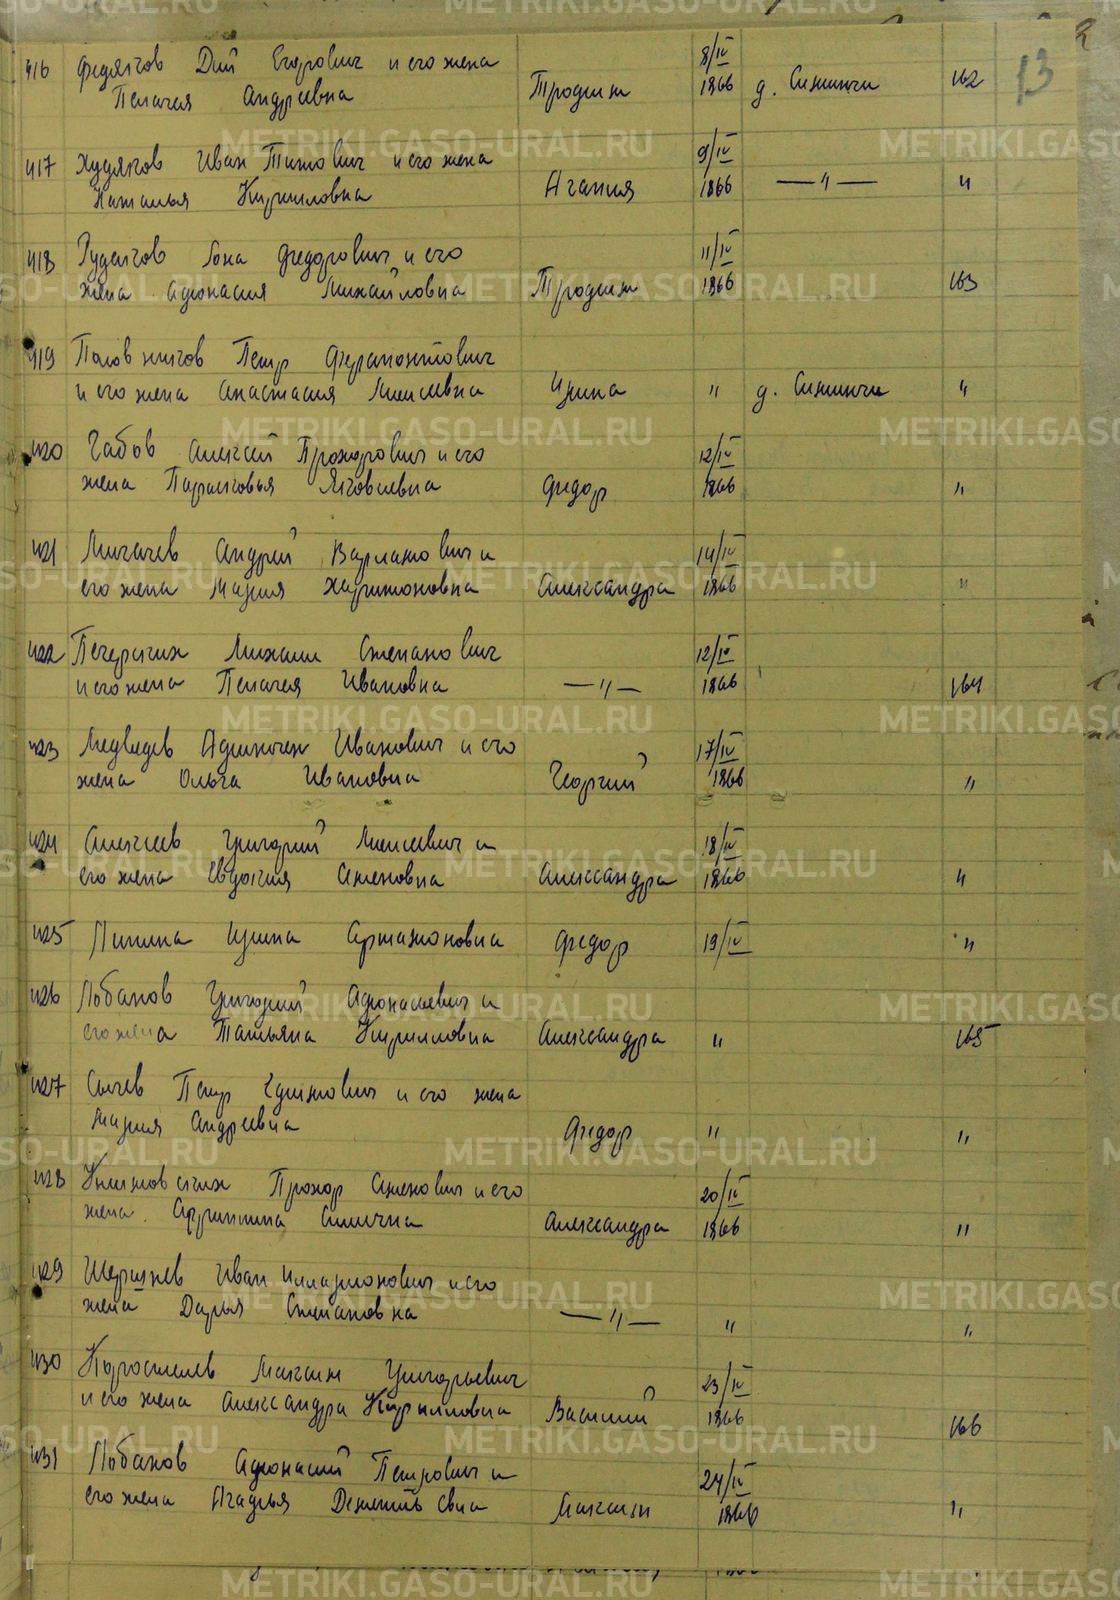 13
416 Федяков Дий Егорович и его жена
Пелагея Андреевна Трофим 8/IV 1866 д. 162
417 Худяков Иван Титович и его жена
Наталья Кирилловна Агапия 9/IV 1866 —〃— 〃
418 Рудаков Иона Федорович и его
жена Афонасия Михайловна Трофим 11/IV 1866 163
419 Половников Петр Ферапонтович
и его жена Анастасия Моисеевна Ирина 〃 д. 〃
420 Габов Алексей Прохорович и его
жена Парасковья Яковлевна Федор 12/IV 1866 〃
421 Мигачев Андрей Варламович и
его жена Мария Харитоновна Александра 14/IV 1866 〃
422 Печерских Михаил Степанович
и его жена Пелагея Ивановна —〃— 12/IV 1866 164
423 Медведев Иванович и его
жена Ольга Ивановна Георгий 17/IV 1866 〃
424 Алексеев Григорий Моисеевич и
его жена Евдокия Семеновна Александра 18/IV 1866 〃
425 Ирина Артамоновна Федор 19/IV 〃
426 Лобанов Григорий Афонасиевич и
его жена Татьяна Кирилловна Александра 〃 165
427 Сычев Петр Ефимович и его жена
Мария Андреевна Федор 〃 〃
428 Климовских Прохор Семенович и его
жена Агриппина Ильична Александра 20/IV 1866 〃
429 Шершнев Иван Илларионович и его
жена Дарья Степановна —〃— 〃 〃
430 Коростелев Максим Григорьевич
и его жена Александра Кирилловна Василий 23/IV 1866 166
431 Лобанов Афонасий Петрович и
его жена Агафья Дементьевна Максим 24/IV 1866 〃
METRIKI.GASO-URAL.RU